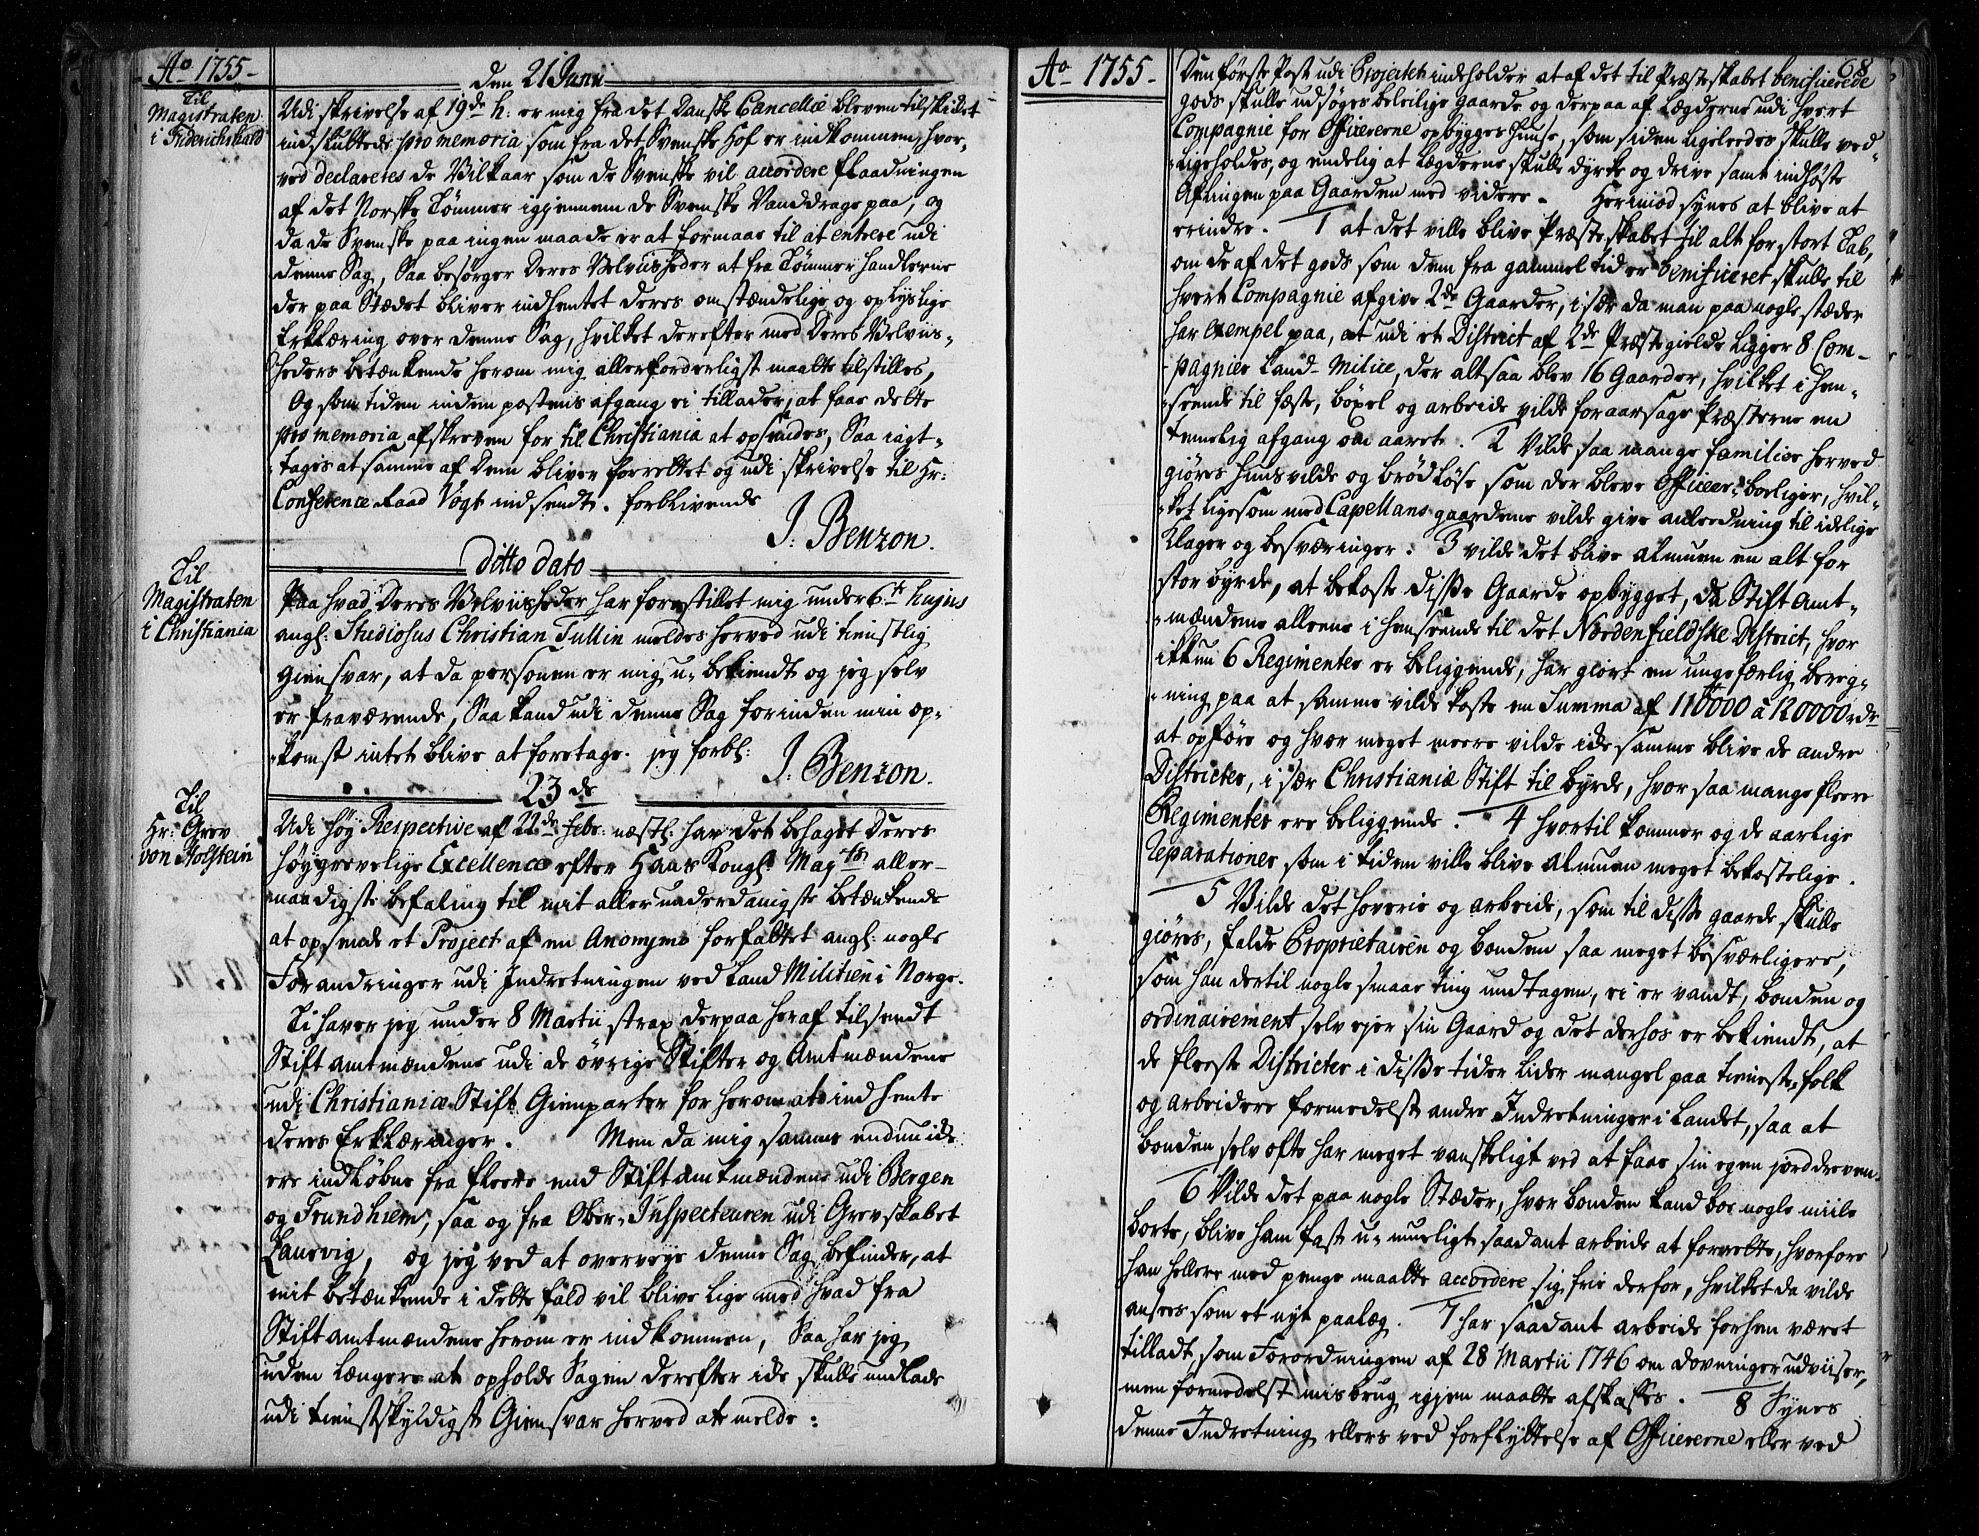 Ao 1755-
den 21 Junii
Til
Magistraten
i Friderichshald
Udi skrivelse af 19de h: er mig fra det Danske Cancellie bleven tilskiket
indsluttede promemoria som fra det Svenske Hof er indkommen, hvor-
ved declareres de Vilkaar som de Svenske vil accordere flaadningen
af det Norske Tømmer igiennem de Svenske Vanddrage paa, og
da de Svenske paa ingen maade er at formaae til at entrere udi
denne Sag, Saa besørger Deres Velviisheder at fra Tømmer handlerne
der paa Stædet bliver indhentet deres omstændelige og oplyslige
Erklæring over denne Sag, hvilket derefter med Deres Velviis-
heders betænkende herom mig allerforderligst maatte tilstilles,
Og som tiden inden postens afgang ei tillader, at faae dette
promemoria afskreven for til Christiania at opsendes, Saa iagt-
tages at samme af Dem bliver forrettet og udi skrivelse til Hr:
Conference Raad Vogt indsendt. forblivende
J: Benzon.
ditto dato
Til
Magistraten
i Christiania
Paa hvad Deres Velviisheder har forestillet mig under 6te hujus
angl: Studiosus Christian Tullin meldes herved udi tienstlig
Giensvar, at da personen er mig u-bekiendt og jeg selv
er fraværende, Saa kand udi denne Sag forinden min op-
komst intet blive at foretage. jeg forbl:
J: Benzon.
23de
Til
Hr: Grev
von Holstein
Udi høy Respective af 22de Febr: næstl: har det behaget Deres
Høygrevelige Excellence efter Hans Kongl: Mayts aller-
naadigste befaling til mit allerunderdanigste betænkende
at opsende et Project af en Anonymo forfattet angl: nogle
Forandringer udi Indretningen ved Land Militien i Norge.
Ti haver jeg under 8 Martii strax derpaa heraf tilsendt
Stiftamtmændene udi de øvrige Stifter og Amtmændene
udi Christianiæ Stift Gienparter for herom at indhente
deres Erklæringer. Men da mig samme endnu ide
ere indløbne fra fleere end Stiftamtmændene udi Bergen
og Trundhiem, saa og fra Ober-Inspecteuren udi Grevskabet
Laurvig, og jeg ved at overveye denne Sag befinder, at
mit betænkende i dette fald vil blive lige med hvad fra
Stiftamtmændene herom er indkommen, Saa har jeg
uden længere at opholde Sagen derefter ide skulle undlade
udi tienstskyldigst Giensvar herved at melde:
Ao 1755-
68
Den første Post udi Projectet indeholder at af det til Præsteskabet benificerede
gods skulle udsøges beleilige gaarde og derpaa af Lægderne udi hvert
Compagnie for Officererne opbygges huuse, som siden ligeleedes skulle ved-
ligeholdes, og endelig at Lægderne skulle dyrke og drive samt indhøste
Aflingen paa Gaarden med videre. Herimod synes at blive at
erindre. 1 at det ville blive Præsteskabet til alt for stort Tab,
om de af det gods som dem fra gammel tid er benificeret skulle til
hvert Compagnie afgive 2de Gaarder, i sær da man paa nogle stæder
har Exempel paa, at udi et District af 2de Præstegielde ligger 8 Com-
pagnier Land-Milice, der altsaa blev 16 Gaarder, hvilket i hen-
seende til fæste, bøxel og arbeide vilde foraarsage Præsterne en
temelig afgang om aaret. 2 Vilde saa mange familier herved
giøres huusvilde og brødløse som der bleve Officeer-boeliger, hvil-
ket ligesom med Capellans gaardene vilde give anleedning til idelige
klager og besværinger. 3 vilde det blive almuen en alt for
stor byrde, at bekoste disse Gaarde opbygget, da Stift Amt-
mændene alleene i henseende til det Nordenfieldske District, hvor
ikkun 6 Regimenter er beliggende, har giort en ungefærlig bereg-
ning paa at samme vilde koste en Summa af 110000 à 120000 rdr
at opføre og hvor meget meere vilde ide samme blive de andre
Districter, i sær Christianiæ Stift til byrde, hvor saa mange fleere
Regimenter ere beliggende. 4 hvortil kommer og de aarlige
Reparationer som i tiden ville blive almuen meget bekostelige.
5 Vilde det hoverie og arbeide, som til disse gaarde skulle
giøres, falde Proprietairen og bonden saa meget besværligere,
som han dertil nogle smaae ting undtagen, ei er vandt, bonden og
ordinairement selv ejer sin Gaard og det derhos er bekiendt, at
de fleeste Districter i disse tider lider mangel paa tieneste-folk
og arbeidere formedelst andre Indretninger i Landet, saa at
bonden selv ofte har meget vanskeligt ved at faae sin egen jord dreven.
6 Vilde det paa nogle Stæder, hvor bonden kand boe nogle miile
borte, blive ham fast u-mueligt saadant arbeide at forrette, hvorfore
han hellere med penge maatte accordere sig frie derfor, hvilket da vilde
ansees som et nyt paalæg. 7 har saadant arbeide forhen været
tilladt, som Forordningen af 28 Martii 1746 om dovninger udviiser,
men formedelst misbrug igien maatte afskaffes. 8 Synes
denne Indretning ellers ved forflyttelse af Officererne eller ved